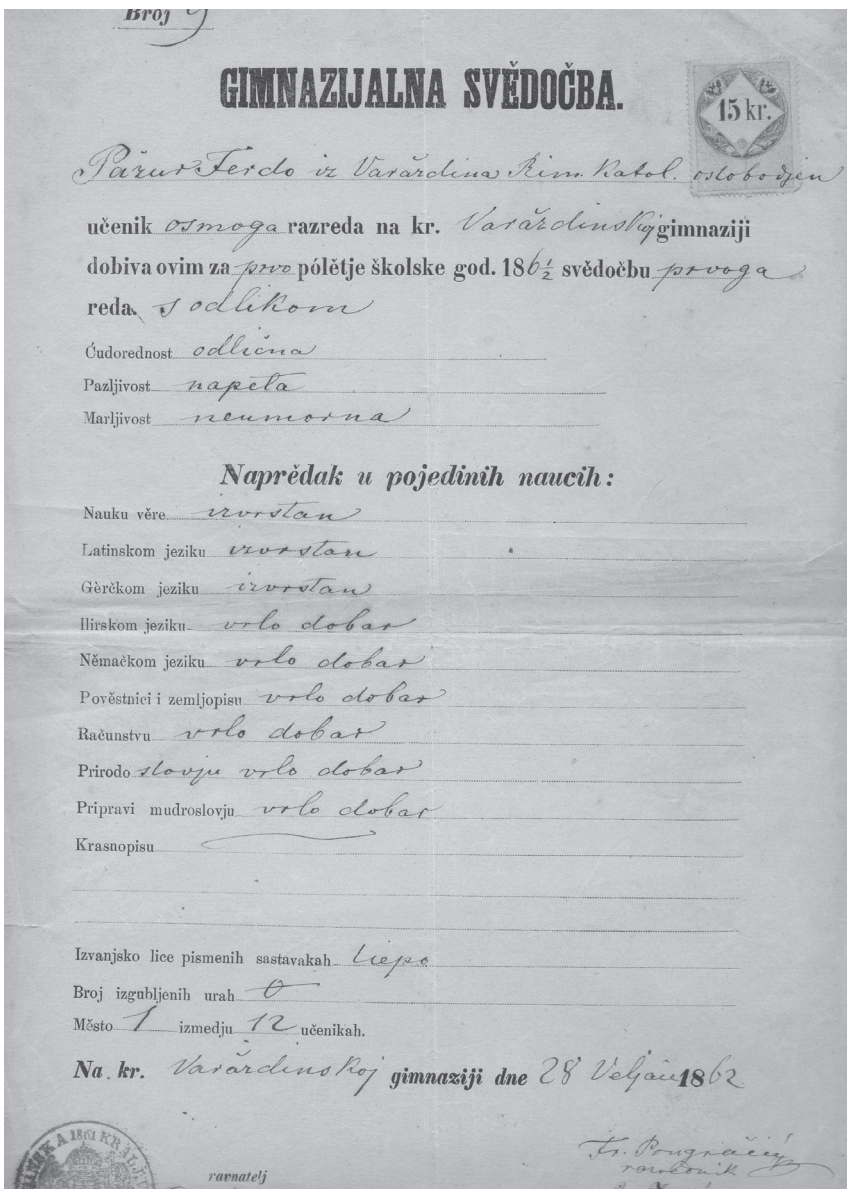 Broj 9
GIMNAZIJALNA SVĚDOČBA.
15 kr.
Pažur Ferdo iz Varaždina Rim. Katol. oslobodjen
učenik osmoga razreda na kr. Varaždinskoj gimnaziji
dobiva ovim za prvo pólětje školske god. 186½ svědočbu prvoga
reda. s odlikom
Ćudorednost odlična
Pazljivost napeta
Marljivost neumorna
Naprědak u pojedinih naucih:
Nauku věre izvrstan
Latinskom jeziku izvrstan
Gèrčkom jeziku izvrstan
Ilirskom jeziku vrlo dobar
Němačkom jeziku vrlo dobar
Pověstnici i zemljopisu vrlo dobar
Računstvu vrlo dobar
Prirodoslovju vrlo dobar
Pripravi mudroslovju vrlo dobar
Krasnopisu
Izvanjsko lice pismenih sastavakah liepo
Broj izgubljenih urah 0
Město 1 izmedju 12 učenikah.
Na kr. Varaždinskoj gimnaziji dne 28 Veljače 1862
1861 KRALJ
Fr. Pongračić
razrednik
ravnatelj